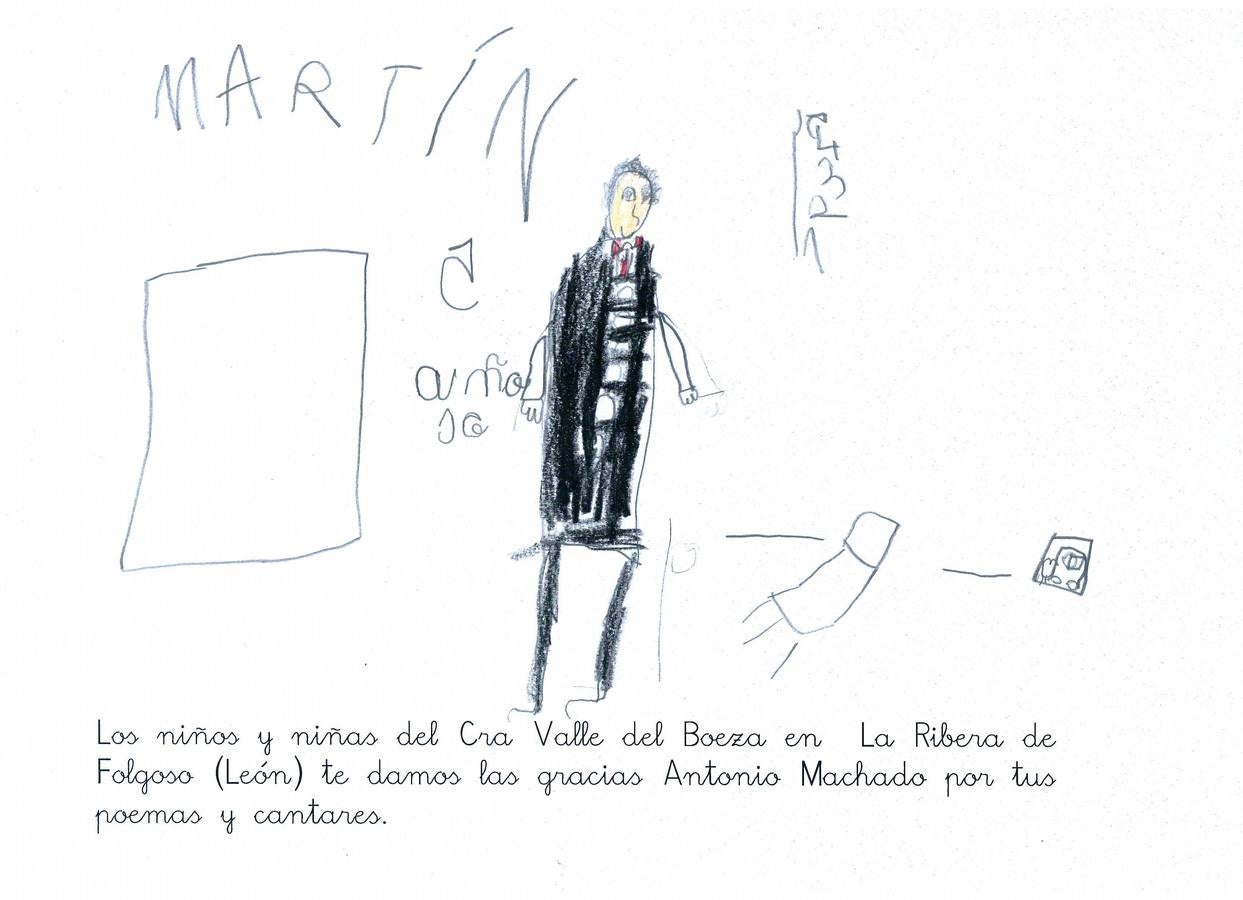 MARTÍN
5
año
12345
Los niños y niñas del Cra Valle del Boeza en La Ribera de
Folgoso (León) te damos las gracias Antonio Machado por tus
poemas y cantares.